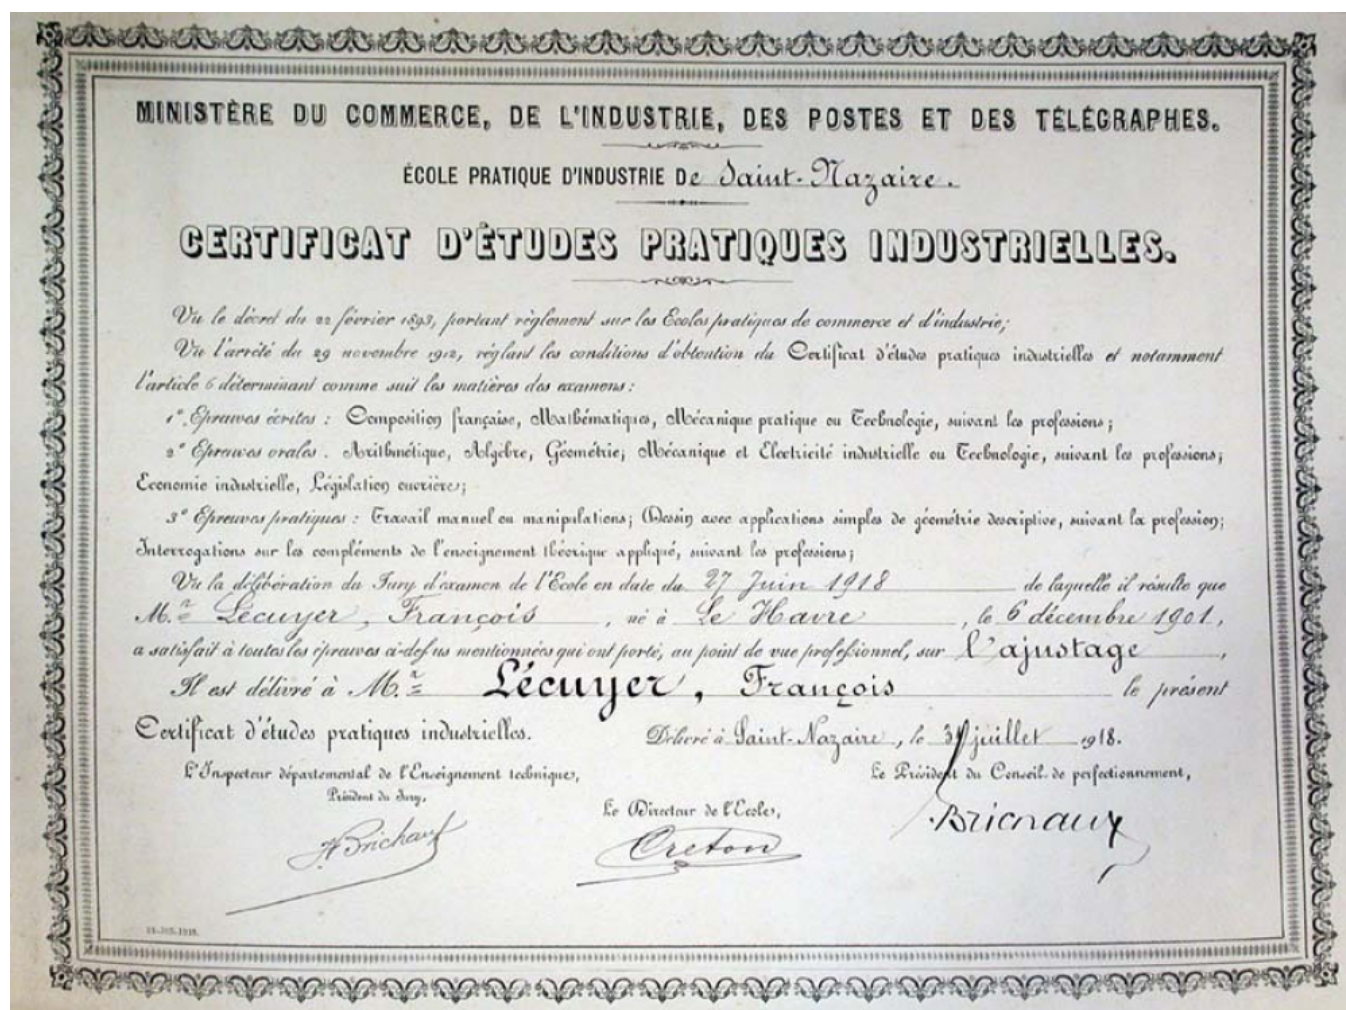 MINISTÈRE DU COMMERCE, DE L'INDUSTRIE, DES POSTES ET DES TÉLÉGRAPHES.
ÉCOLE PRATIQUE D'INDUSTRIE De Saint-Nazaire.
CERTIFICAT D'ÉTUDES PRATIQUES INDUSTRIELLES.
Vu le décret du 22 février 1893, portant règlement sur les Ecoles pratiques de commerce et d'industrie;
Vu l'arrêté du 29 novembre 1912, réglant les conditions d'obtention du Certificat d'études pratiques industrielles et notamment
l'article 6 déterminant comme suit les matières des examens :
1° Epreuves écrites : Composition française, Mathématiques, Mécanique pratique ou Technologie, suivant les professions ;
2° Epreuves orales . Arithmétique, Algèbre, Géométrie; Mécanique et Electricité industrielle ou Technologie, suivant les professions;
Economie industrielle, Législation ouvrière;
3° Epreuves pratiques : Travail manuel ou manipulations; Dessin avec applications simples de géométrie descriptive, suivant la profession;
Interrogations sur les compléments de l'enseignement théorique appliqué, suivant les professions;
Vu la délibération du Jury d'examen de l'Ecole en date du 27 Juin 1918 de laquelle il résulte que
M.r Lécuyer, François , né à Le Havre , le 6 décembre 1901,
a satisfait à toutes les épreuves ci-dessus mentionnées qui ont porté, au point de vue professionnel, sur l'ajustage ,
Il est délivré à M.r Lécuyer, François le présent
Certificat d'études pratiques industrielles. Délivré à Saint-Nazaire, le 31 juillet 1918.
L'Inspecteur départemental de l'Enseignement technique, Le Président du Conseil de perfectionnement,
Président du Jury,
Le Directeur de l'Ecole,
Creton